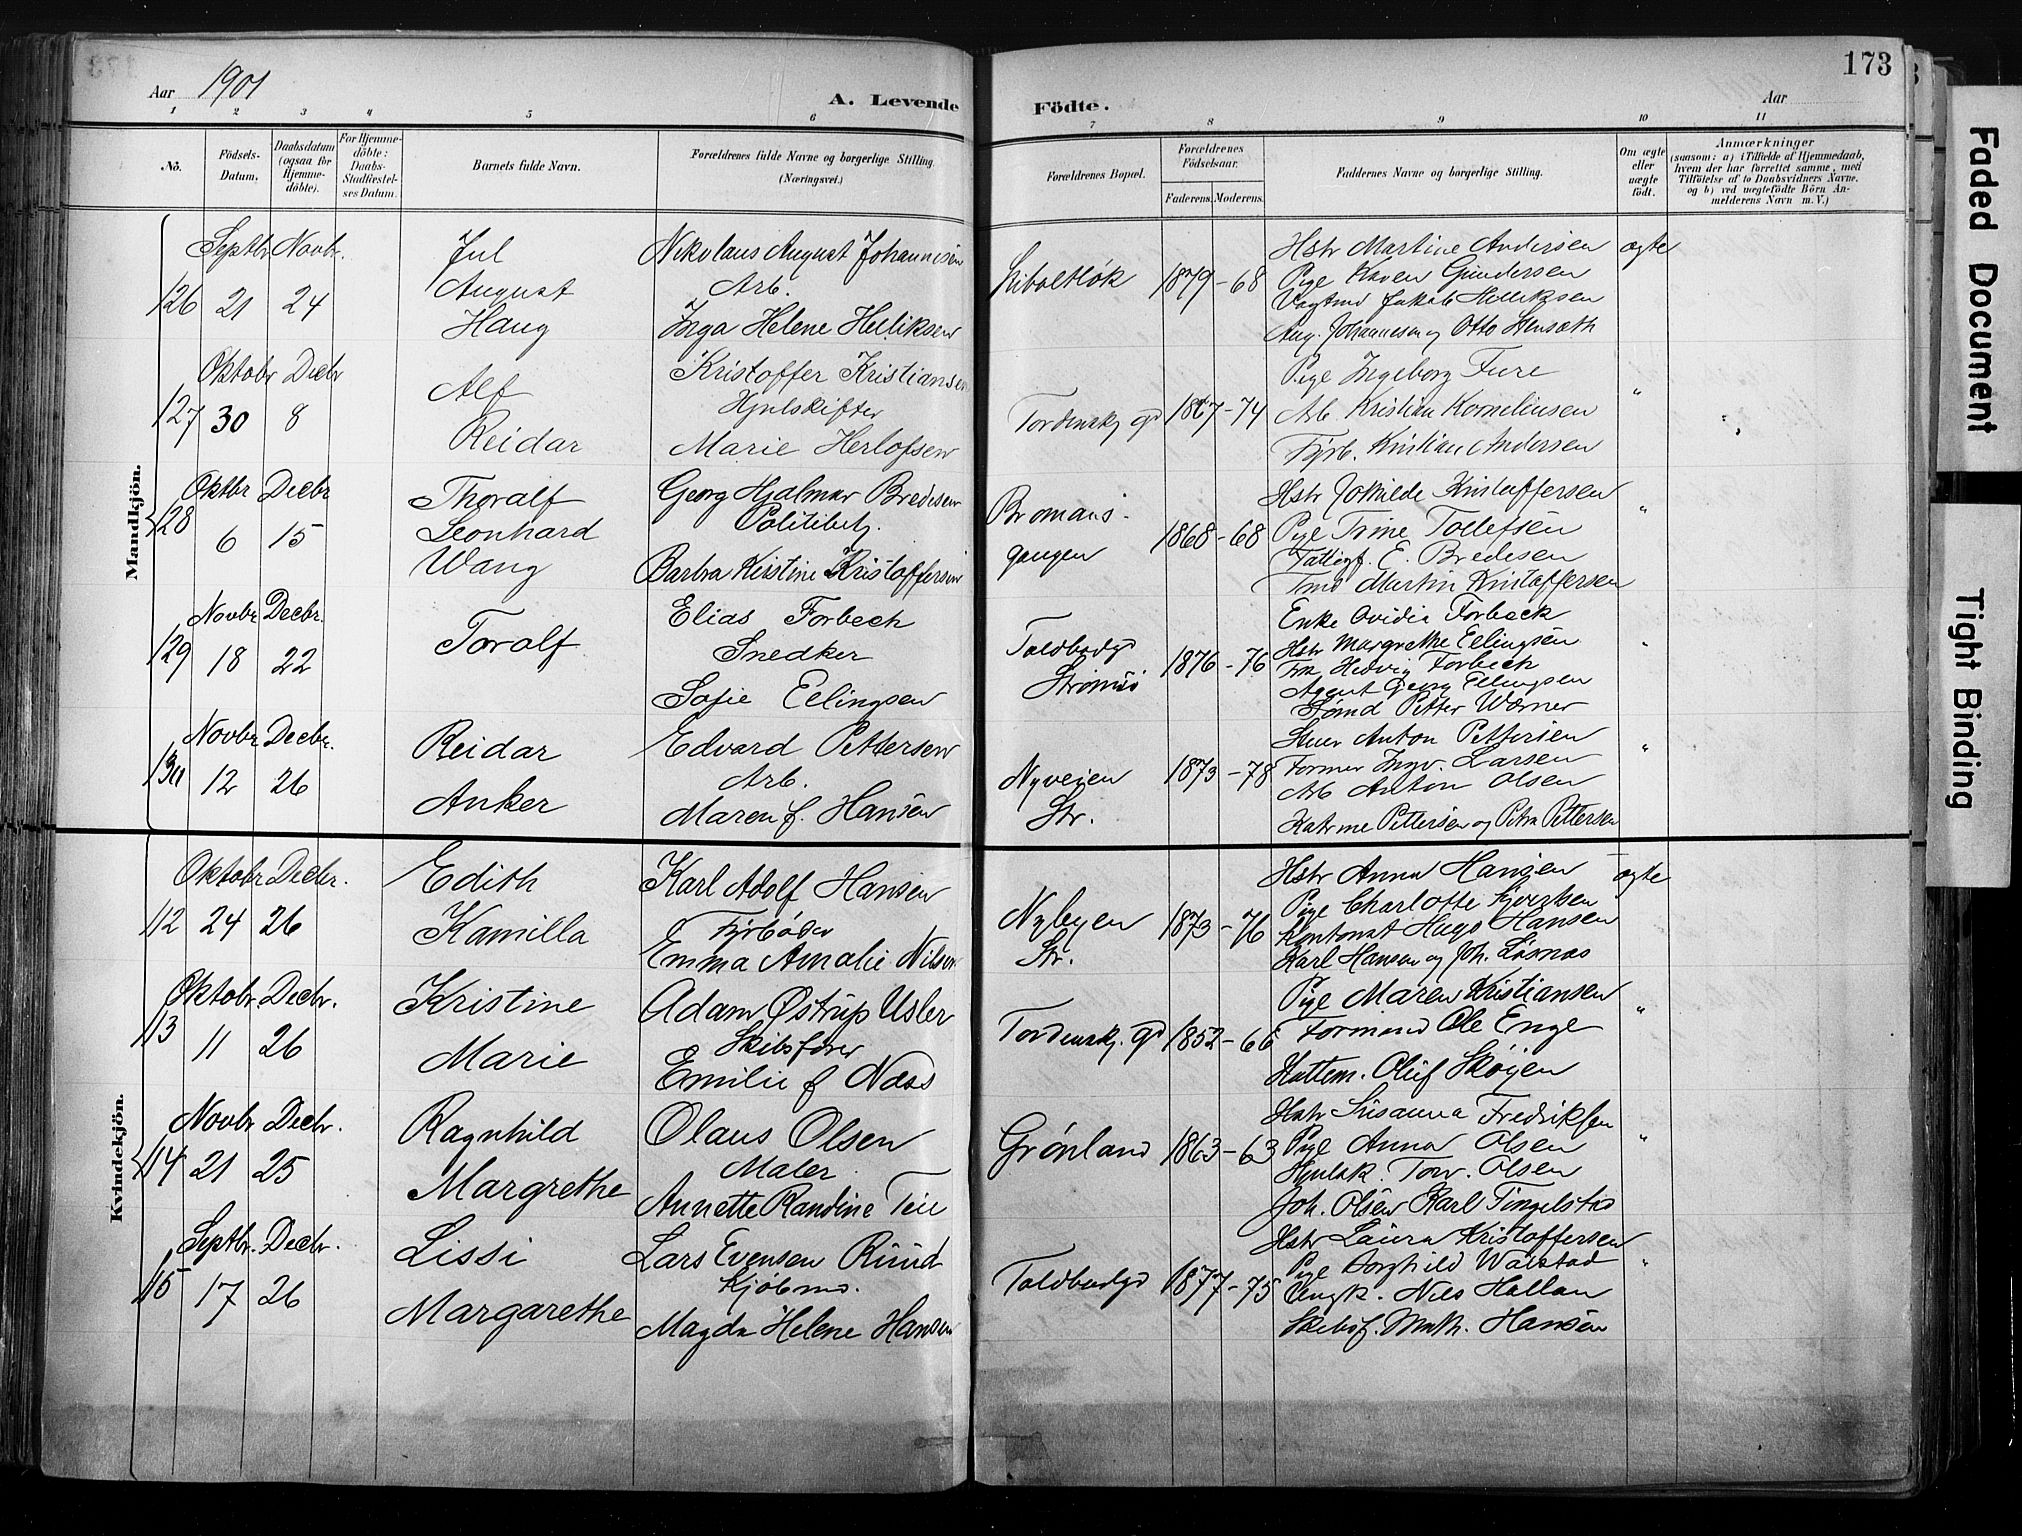 173
Aar 1901
A. Levende Födte.
Aar
1 2 3 4 5 6 7 8 9 10 11
No.
Födsels-Datum.
Daabsdatum (ogsaa for Hjemmedöbte).
For Hjemmedöbte: Daabs-Stadfæstelses Datum.
Barnets fulde Navn.
Forældrenes fulde Navne og borgerlige Stilling. (Næringsvei.)
Forældrenes Bopæl.
Forældrenes Födselsaar.
Faderens. Moderens.
Faddernes Navne og borgerlige Stilling.
Om ægte eller uægte födt.
Anmærkninger
(saasom: a) i Tilfælde af Hjemmedaab, hvem der har forrettet samme, med Tilföielse af to Daabsvidners Navne, og b) ved uægtefödte Börn Anmelderens Navn m. V.)
Mandkjön.
126 Septbr 21 Novbr. 24
Jul
August
Haug
Nikolaus August Johannesen
Arb.
Inga Helene Helliksen
1879-68
Hstr Martine Andersen
Pige Karen Gundersen
Vagtmd Jakob Helliksen
Aug. Johannesen og Otto
ægte
127 Oktobr 30 Decbr 8
Alf
Reidar
Kristoffer Kristiansen
Hjulskifter
Marie Herlofsen
Tordenskj gd
1867-74
Pige Ingeborg Fure
Arb Kristian Korneliusen
Fyrb. Kristian Andersen
"
128 Oktbr 6 Decbr 15
Thoralf
Leonhard
Wang
Georg Hjalmar Bredesen
Politibetj.
Barbra Kirstine Kristoffersen
Bromans-
gangen
1868-68
Hstr Kristoffersen
Pige Trine Tollefsen
Fattigf. E. Bredesen
Tmd Martin Kristoffersen
"
129 Novbr 18 Decbr. 22
Toralf
Elias Forbech
Snedker
Sofie Ellingsen
Toldbodgd
Strømsø
1876-76
Enke Ovidia Forbech
Hstr Margrethe Ellingsen
Frk Hedvig Forbech
Agent Georg Ellingsen
Sømd Petter Wærner
"
130 Novbr 12 Decbr. 26
Reidar
Anker
Edvard Pettersen
Arb.
Maren f. Hansen
Nyveien
Str.
1873-78
Stuer Anton Pettersen
Former Ingv. Larsen
Arb Anton Olsen
Katrine Pettersen og Petra Pettersen
"
Kvindekjön.
112 Oktobr 24 Decbr. 26
Edith
Kamilla
Karl Adolf Hansen
Fyrbøder
Emma Amalie Nilsen
Nybyen
Str.
1873-76
Hstr Anna Hansen
Pige Charlotte
Kontorist Hugo Hansen
Karl Hansen og Joh. Løsnæs
ægte
113 Oktobr 11 Decbr. 26
Kristine
Marie
Adam Østrup Usler
Skibsfører
Emilie f Næss
Tordenskj. gd
1852-66
Pige Maren Kristiansen
Formand Ole Enge
Hattem. Oluf Skøien
"
114 Novbr 21 Decbr. 25
Ragnhild
Margrethe
Olaus Olsen
Maler
Annette Randine
Grønland
1863-63
Hstr Susanna Fredriksen
Pige Anna Olsen
Hjulsk. Torv. Olsen
Joh. Olsen Karl Tingelstad
"
115 Septbr. 17 Decbr. 26
Lissi
Margarethe
Lars Evensen Ruud
Kjøbmd.
Magda Helene Hansen
Toldbodgd
1877-75
Hstr Laura Kristoffersen
Pige Borghild Walstad
Nils Hallan
Skibsf. Math. Hansen
"
Faded Document
Tight Binding